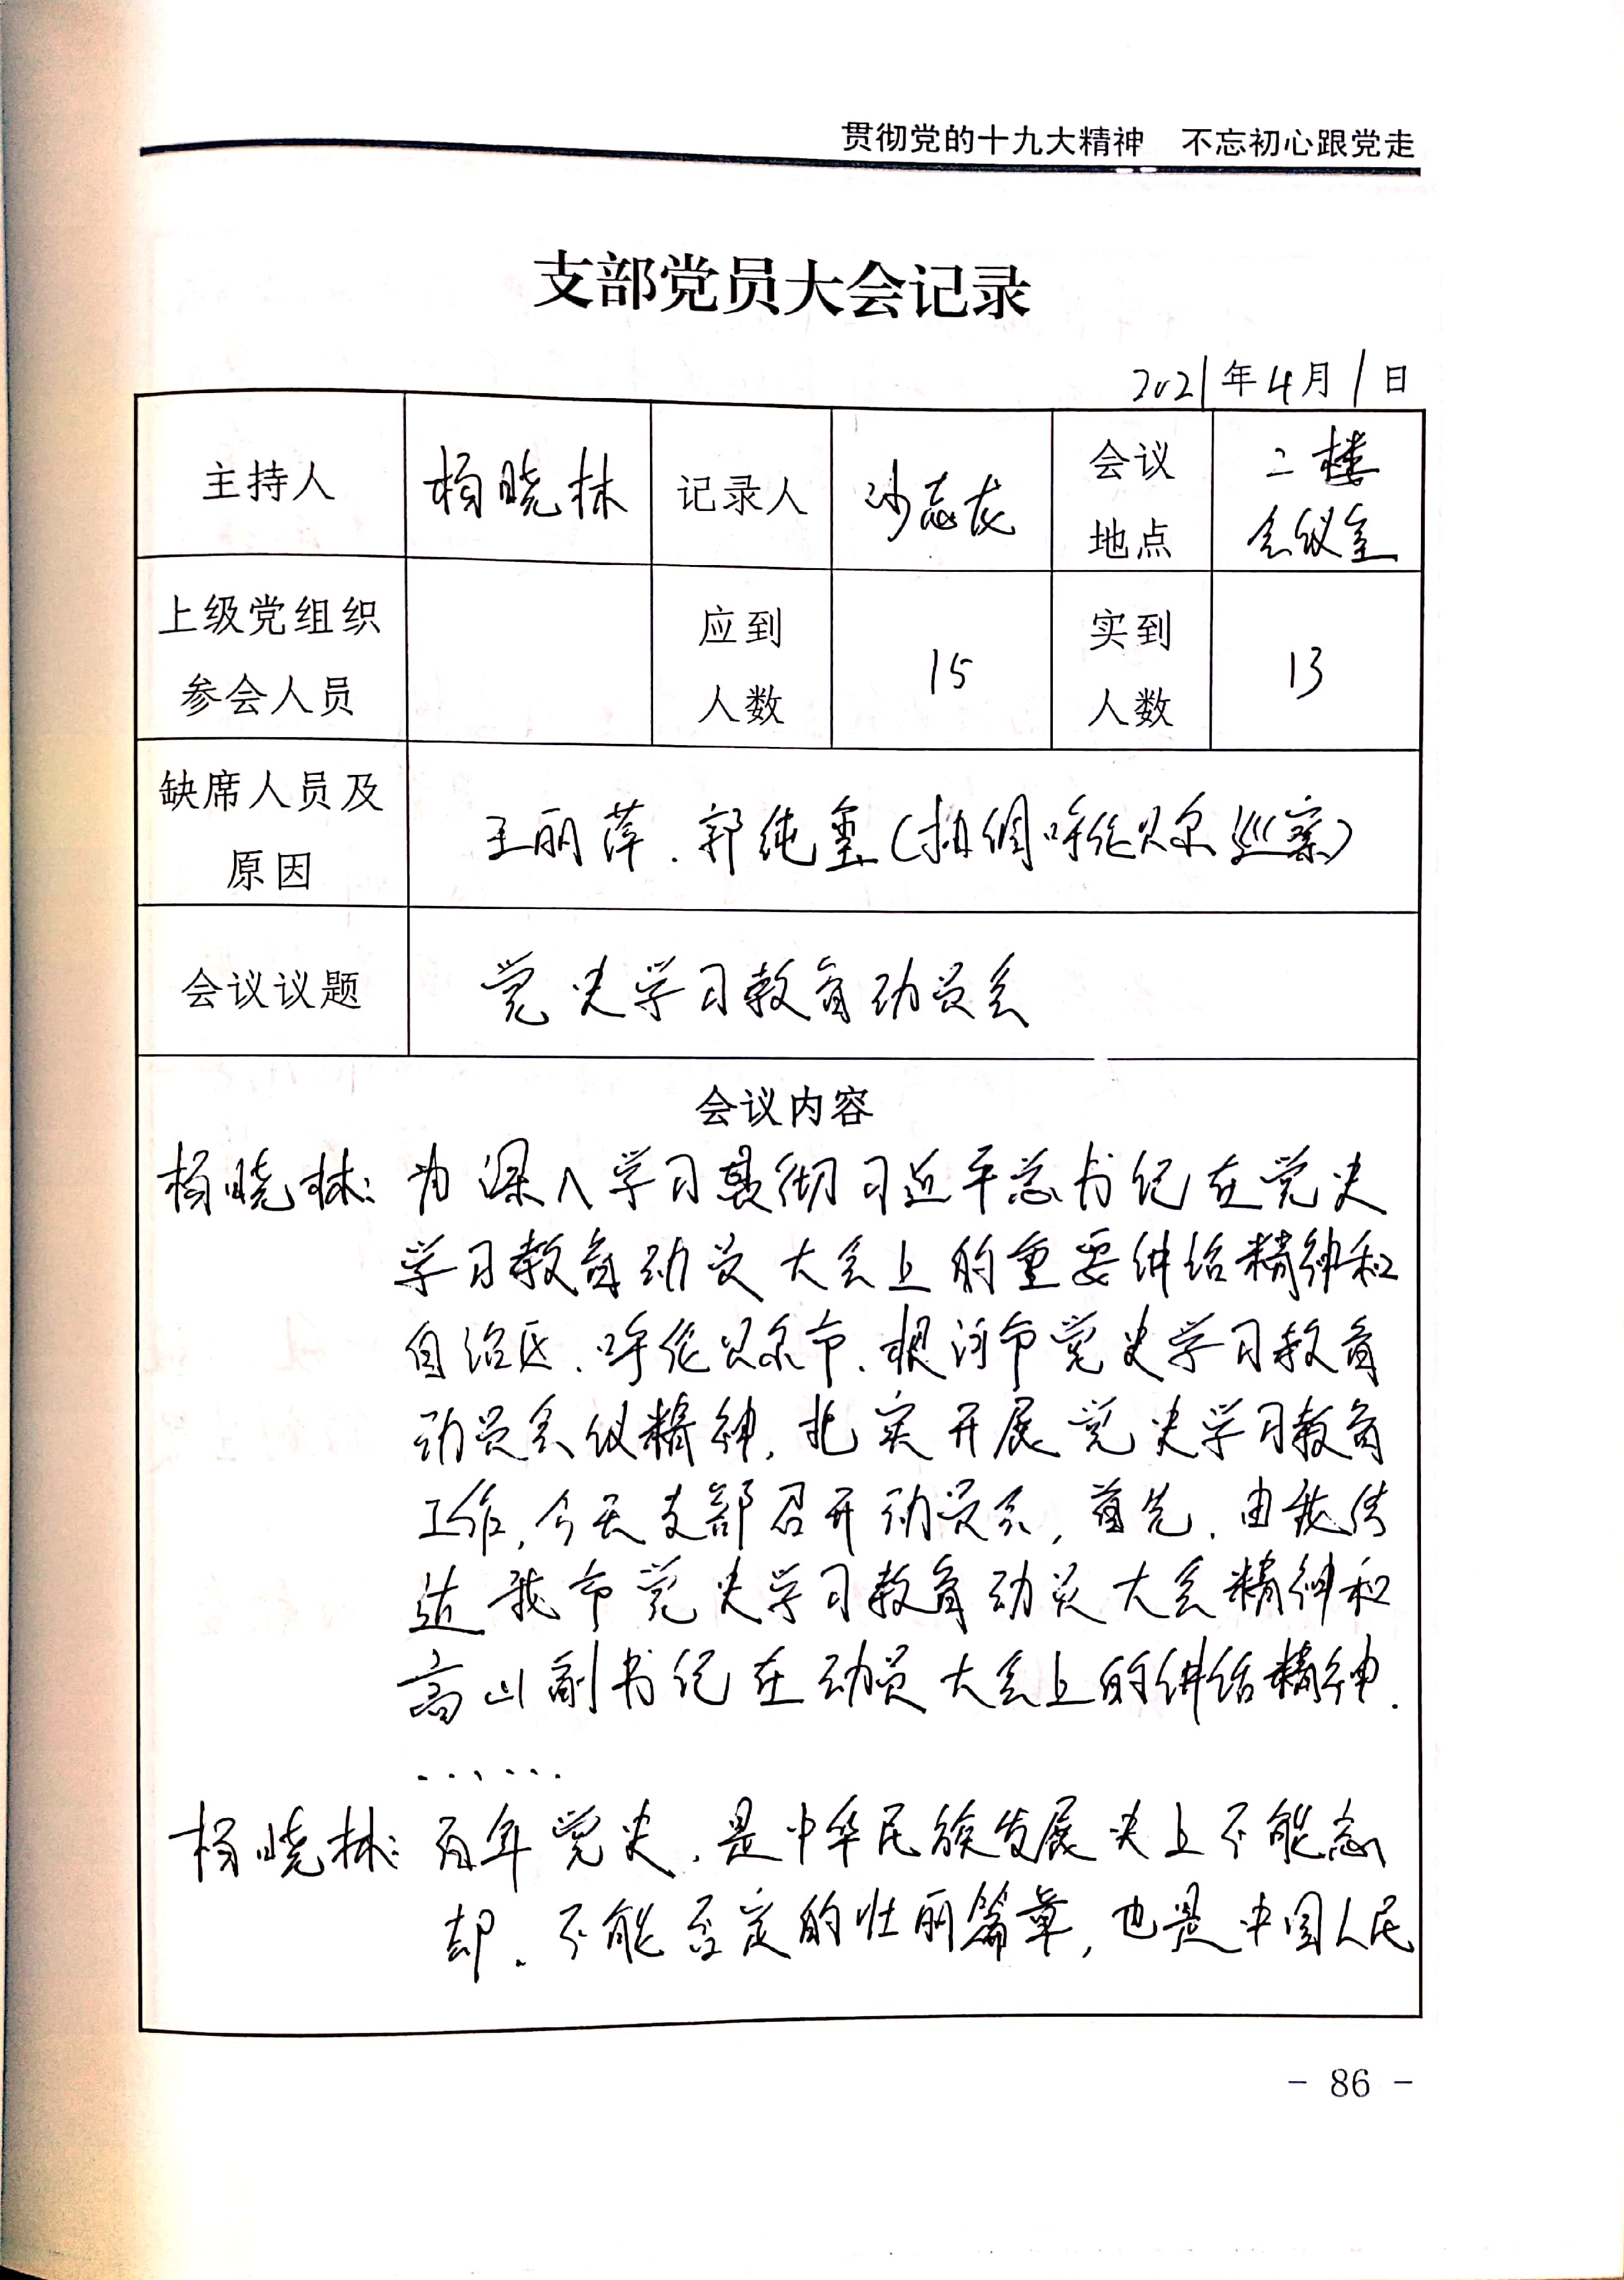 贯彻党的十九大精神 不忘初心跟党走
支部党员大会记录
2021年4月1日
主持人 杨晓林 记录人 沙志龙 会议地点 二楼会议室
上级党组织参会人员 应到人数 15 实到人数 13
缺席人员及原因 王丽萍、郭纯玺(抽调呼伦贝尔巡察)
会议议题 党史学习教育动员会
会议内容
杨晓林:为深入学习贯彻习近平总书记在党史
学习教育动员大会上的重要讲话精神和
自治区、呼伦贝尔市、根河市党史学习教育
动员会议精神,扎实开展党史学习教育
工作,今天支部召开动员会,首先,由我传
达我市党史学习教育动员大会精神和
高山副书记在动员大会上的讲话精神.
......
杨晓林:百年党史,是中华民族发展史上不能忘
却、不能否定的壮丽篇章,也是中国人民
- 86 -